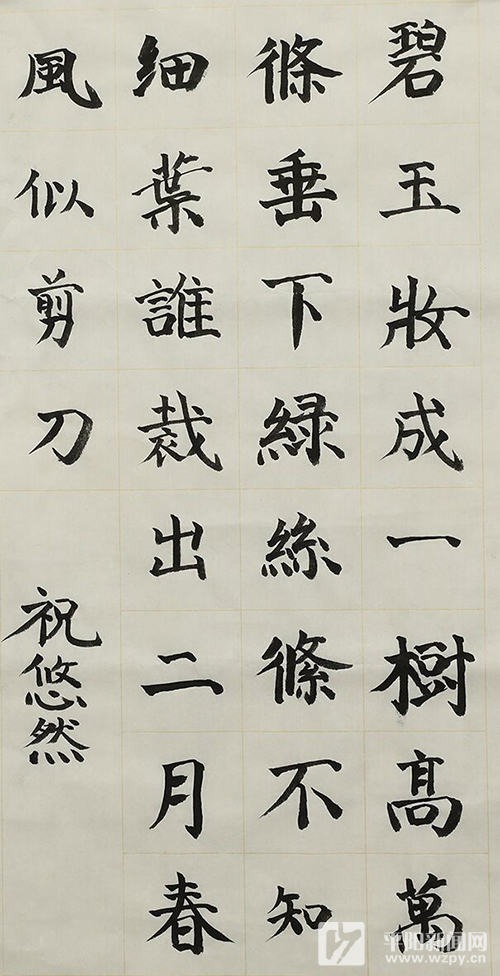 碧玉妝成一樹高萬
條垂下綠絲絛不知
細葉誰裁出二月春
風似剪刀
祝悠然
平阳新闻网
www.wzpy.cn